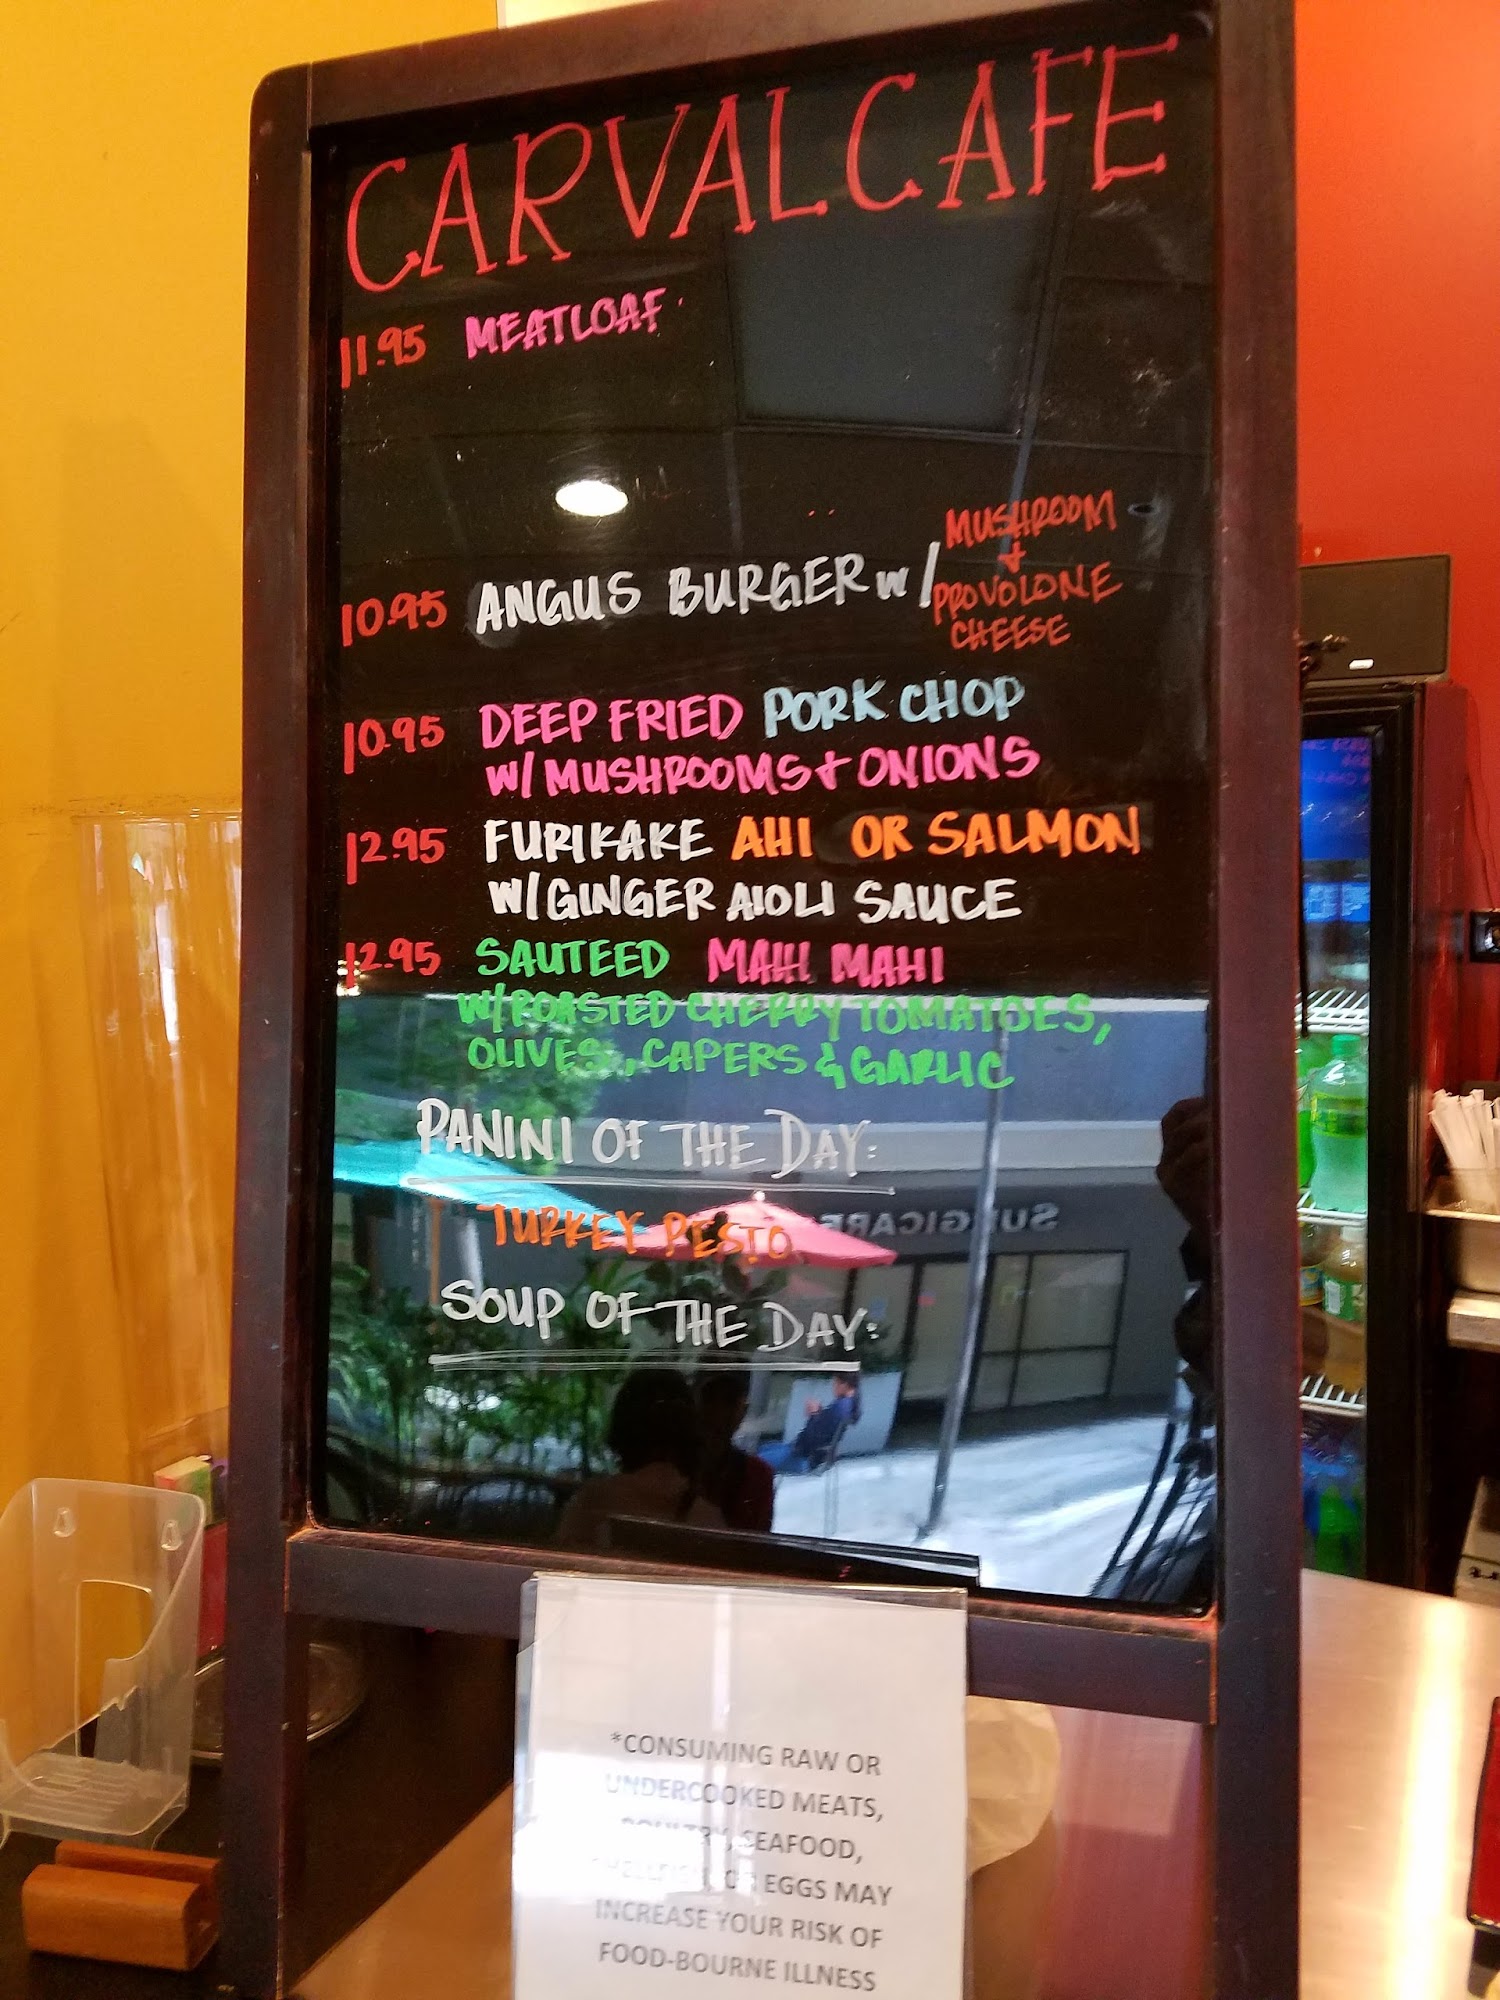 CARVALCAFE
11.95 MEATLOAF
10.95 ANGUS BURGER w/ MUSHROOM
+
PROVOLONE
CHEESE
10.95 DEEP FRIED PORK CHOP
W/ MUSHROOMS + ONIONS
12.95 FURIKAKE AHI OR SALMON
W/ GINGER AIOLI SAUCE
12.95 SAUTEED MAHI MAHI
W/ ROASTED CHERRY TOMATOES,
OLIVES, CAPERS & GARLIC
PANINI OF THE DAY:
TURKEY PESTO
SOUP OF THE DAY:
SURGICARE
*CONSUMING RAW OR
UNDERCOOKED MEATS,
POULTRY, SEAFOOD,
SHELLFISH OR EGGS MAY
INCREASE YOUR RISK OF
FOOD-BOURNE ILLNESS